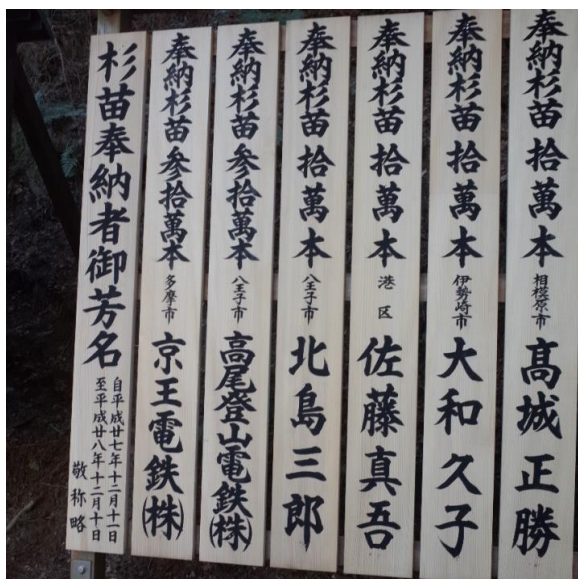 杉苗奉納者御芳名
自平成廿七年十二月十一日
至平成廿八年十二月十日
敬称略
奉納杉苗参拾萬本 多摩市 京王電鉄(株)
奉納杉苗参拾萬本 八王子市 高尾登山電鉄(株)
奉納杉苗拾萬本 八王子市 北島三郎
奉納杉苗拾萬本 港区 佐藤真吾
奉納杉苗拾萬本 伊勢崎市 大和久子
奉納杉苗拾萬本 相模原市 髙城正勝